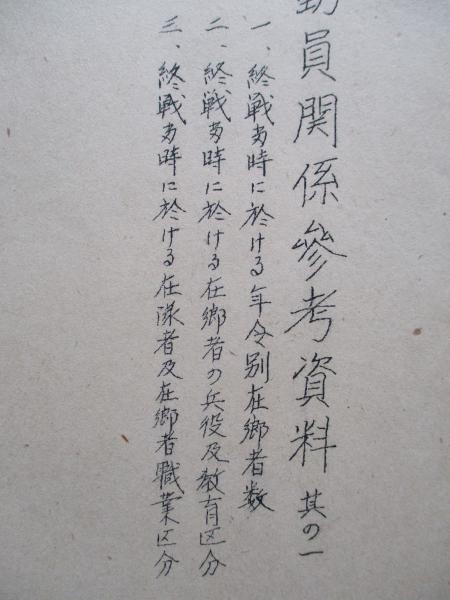 動員関係參考資料 其の一
一、終戦当時に於ける年令別在郷者数
二、終戦当時に於ける在郷者の兵役及教育区分
三、終戦当時に於ける在隊者及在郷者職業区分